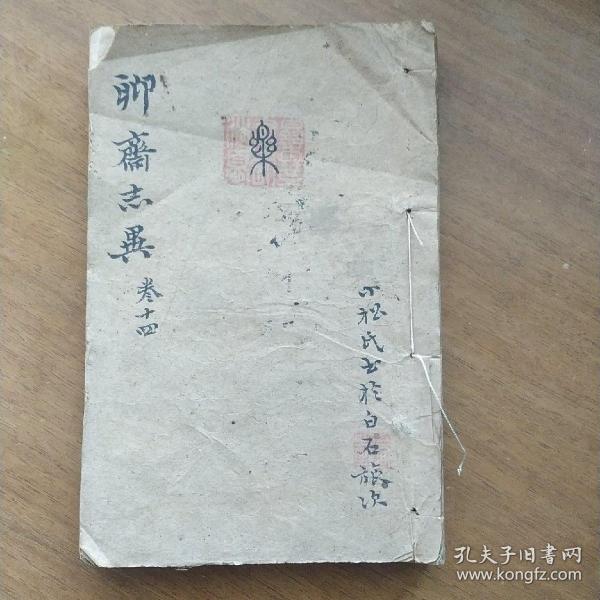 聊齋志異
卷十四
樂
小松氏書於白石旅次
孔夫子旧书网
www.kongfz.com